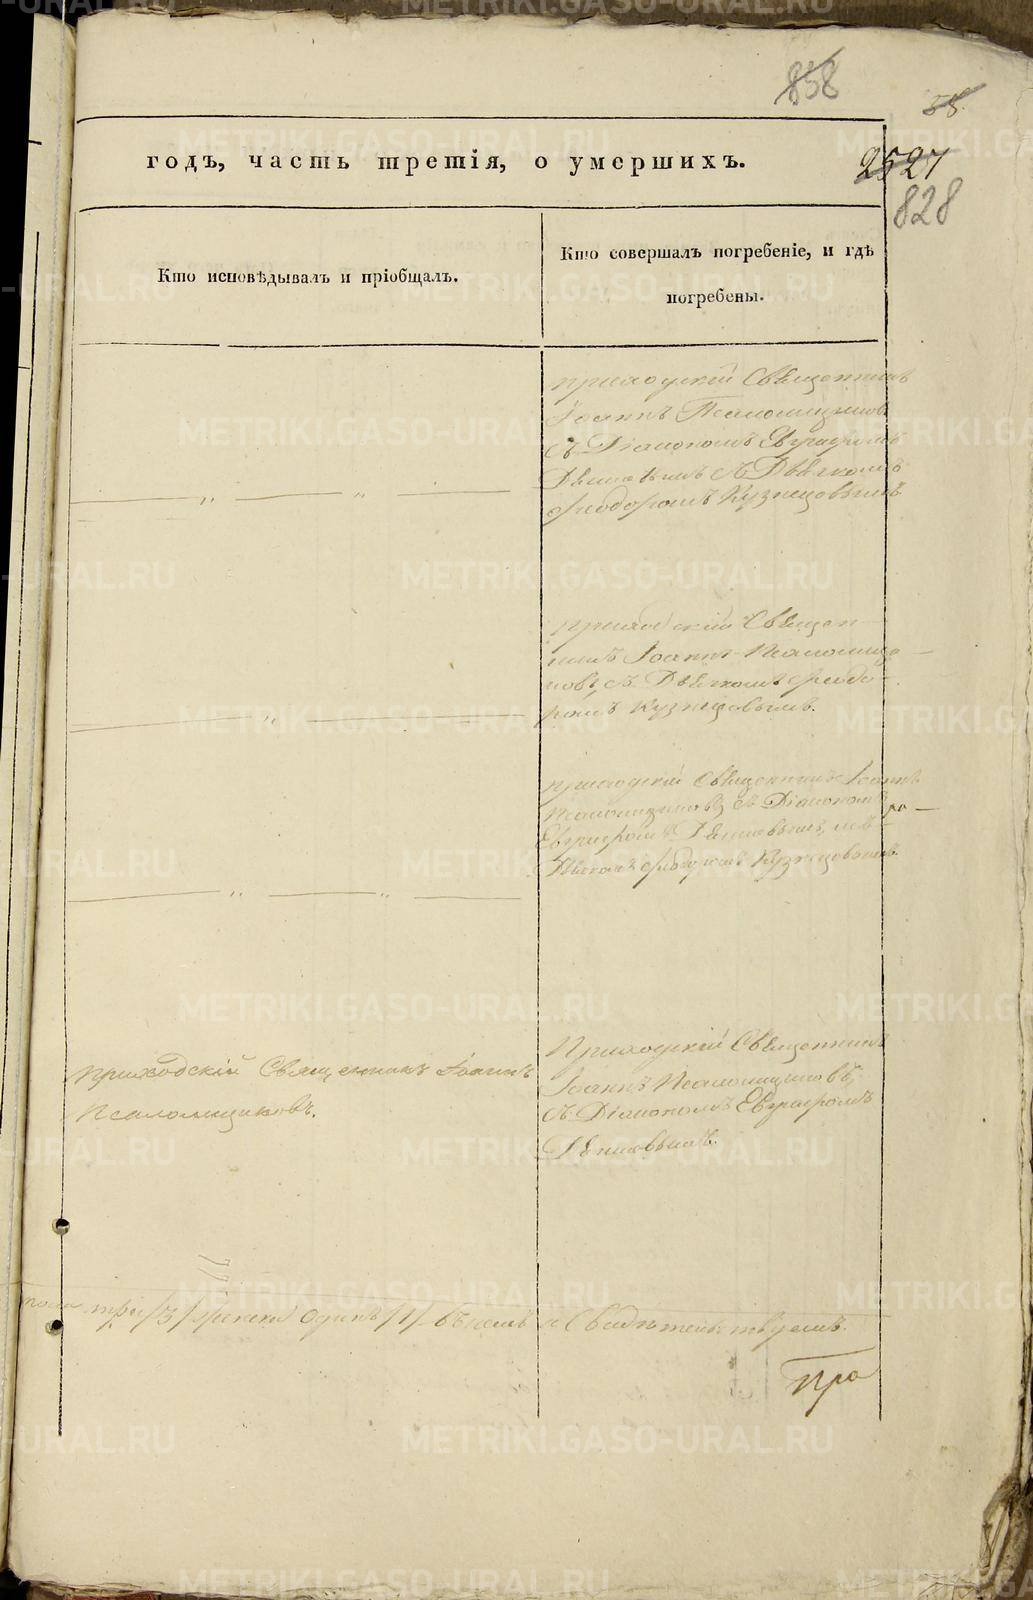 858
58.
годъ, часть третія, о умершихъ.
2527
828
Кто исповѣдывалъ и пріобщалъ.
Кто совершалъ погребеніе, и гдѣ
погребены.
приходскій Священникъ
Іоаннъ Псаломщиковъ
съ Діакономъ Евграфомъ
съ Дьячкомъ
Ѳеодоромъ Кузнецовымъ
приходскій Священ-
никъ Іоаннъ Псаломщи-
ковъ, съ Дьячкомъ Ѳеодо-
ромъ Кузнецовымъ.
приходскій Священникъ Іоаннъ
Псаломщиковъ съ Діакономъ
Евграфомъ
Ѳеодоромъ Кузнецовымъ.
приходскій Священникъ Іоаннъ
Псаломщиковъ.
Приходскій Священникъ
Іоаннъ Псаломщиковъ,
съ Діакономъ Евграфомъ
пола три /3/ женска одинъ /1/ въ чемъ и Свидѣтельствуемъ.
Про
METRIKI.GASO-URAL.RU